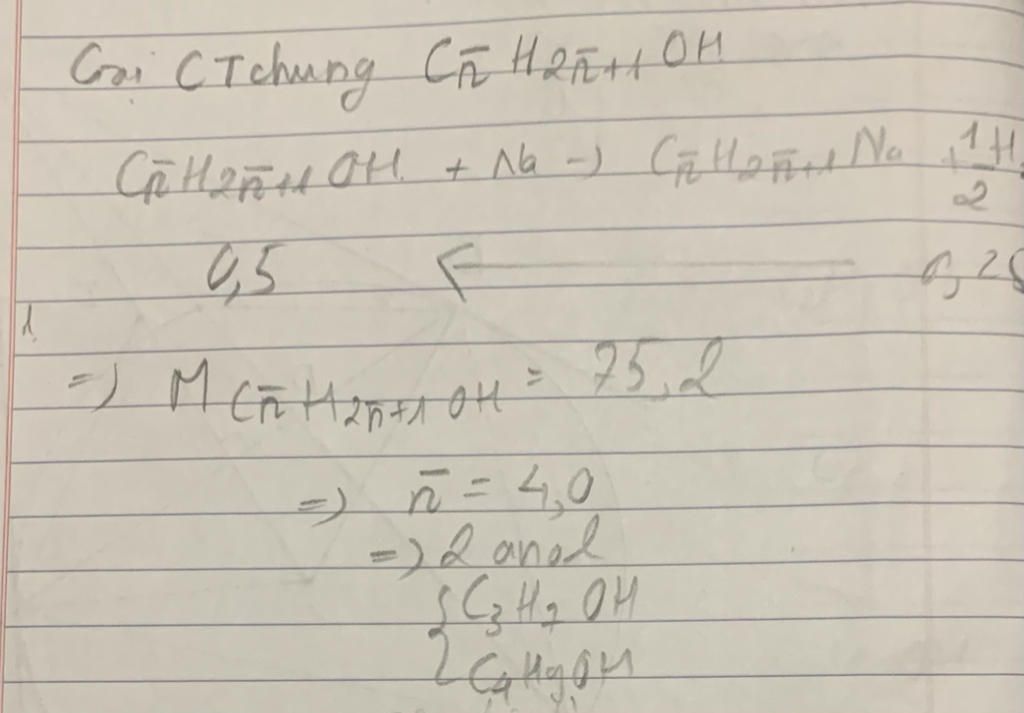 Gọi CT chung Cn̄H2n̄+1OH
Cn̄H2n̄+1OH + Na → Cn̄H2n̄+1Na + 1/2 H
0,5 ← 0,25
=) M Cn̄H2n̄+1OH = 75,2
=) n̄ = 4,0
=) 2 anol
{ C3H7OH
C4H9OH